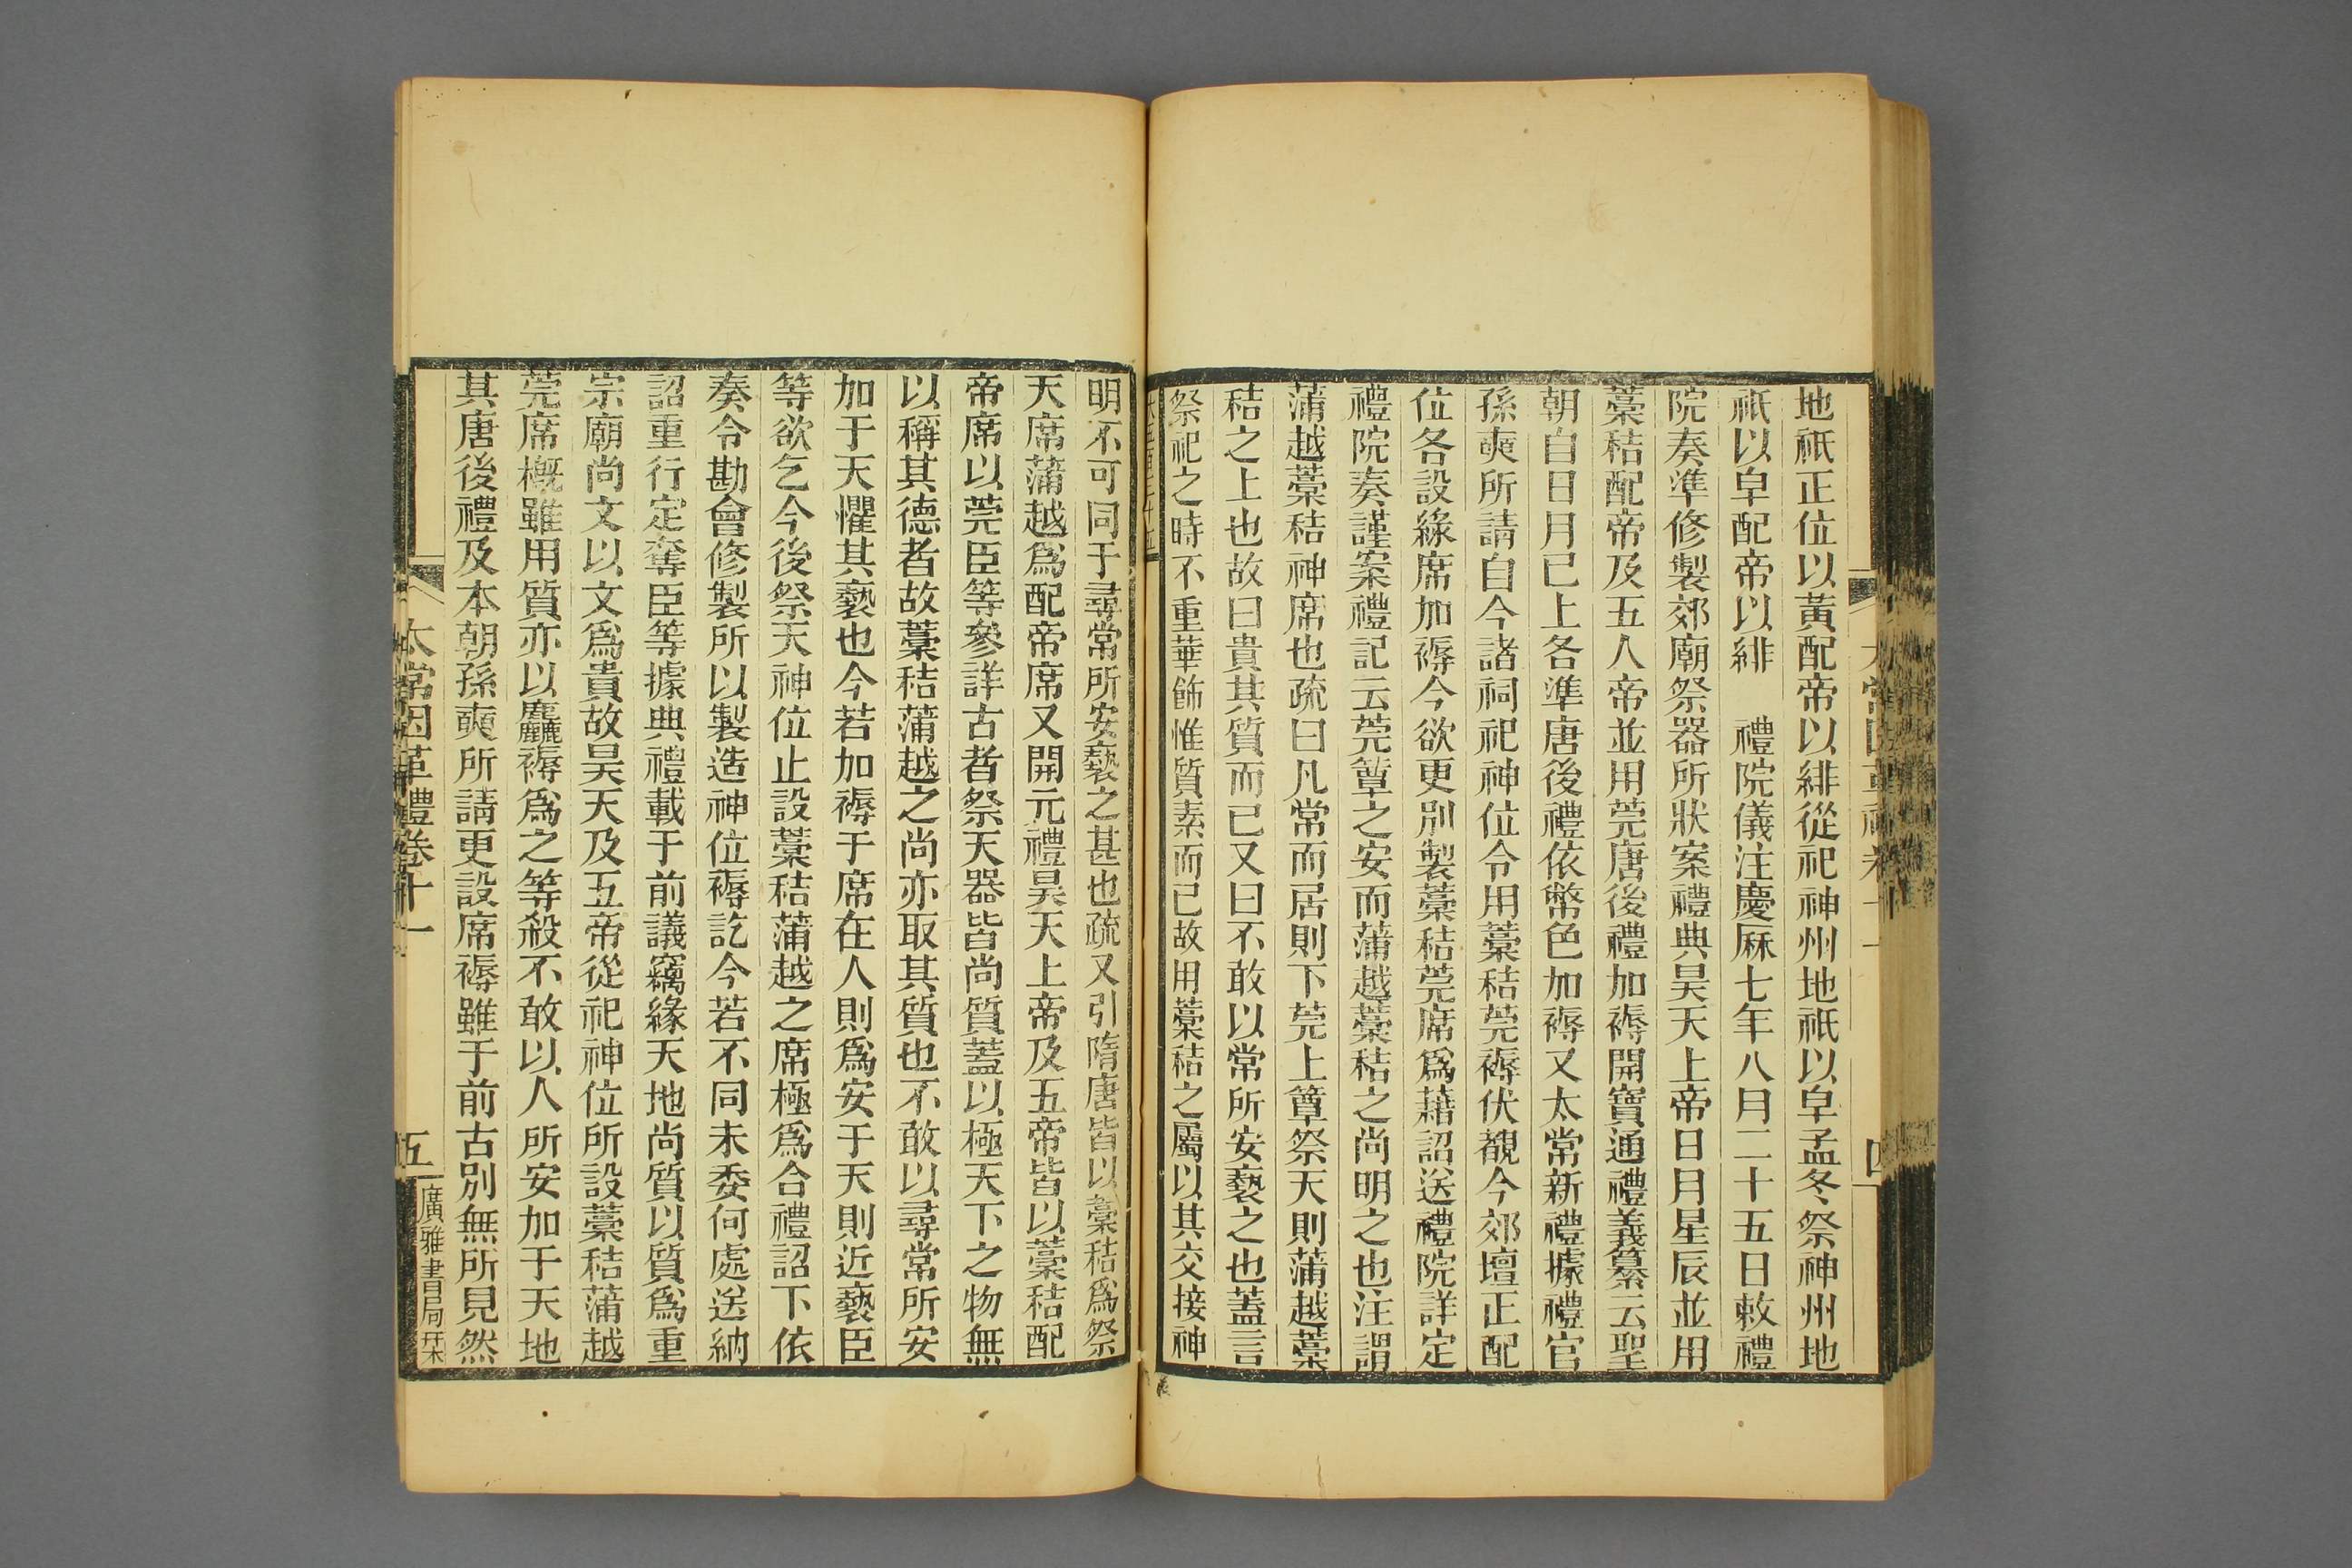 地祇正位以黃配帝以緋從祀神州地祇以皁孟冬祭神州地
祇以皁配帝以緋　禮院儀注慶厤七年八月二十五日敕禮
院奏準修製郊廟祭器所狀案禮典昊天上帝日月星辰並用
藁秸配帝及五人帝並用莞唐後禮加褥開寶通禮義纂云聖
朝自日月已上各準唐後禮依幣色加褥又太常新禮據禮官
孫奭所請自今諸祠祀神位令用藁秸莞褥伏覩今郊壇正配
位各設緣席加褥今欲更別製藁秸莞席爲藉詔送禮院詳定
禮院奏謹案禮記云莞簟之安而蒲越藁秸之尚明之也注謂
蒲越藁秸神席也疏曰凡常而居則下莞上簟祭天則蒲越藁
秸之上也故曰貴其質而已又曰不敢以常所安褻之也蓋言
祭祀之時不重華飾惟質素而已故用藁秸之屬以其交接神
明不可同于尋常所安褻之甚也疏又引隋唐皆以藁秸爲祭
天席蒲越爲配帝席又開元禮昊天上帝及五帝皆以藁秸配
帝席以莞臣等參詳古者祭天器皆尚質蓋以極天下之物無
以稱其德者故藁秸蒲越之尚亦取其質也不敢以尋常所安
加于天懼其褻也今若加褥于席在人則爲安于天則近褻臣
等欲乞今後祭天神位止設藁秸蒲越之席極爲合禮詔下依
奏令勘會修製所以製造神位褥訖今若不同未委何處送納
詔重行定奪臣等據典禮載于前議竊緣天地尚質以質爲重
宗廟尚文以文爲貴故昊天及五帝從祀神位所設藁秸蒲越
莞席槪雖用質亦以麤褥爲之等殺不敢以人所安加于天地
其唐後禮及本朝孫奭所請更設席褥雖于前古別無所見然
太常因革禮卷十一
五
廣雅書局栞